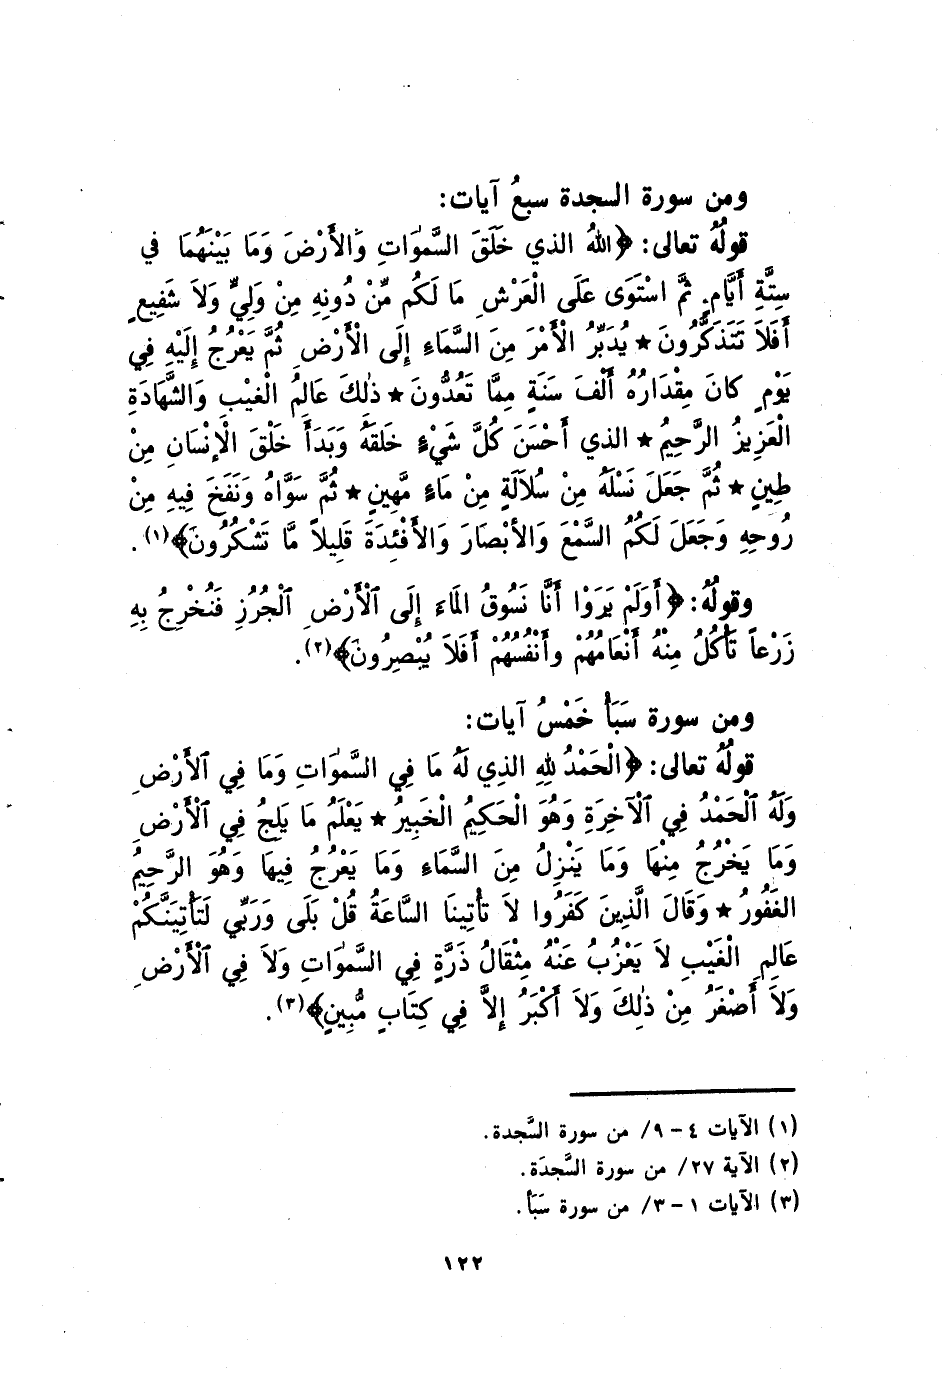 ومن سورة السجدة سبعُ آيات:
قولُهُ تعالى: ﴿اللهُ الذي خَلَقَ السَّمٰوَاتِ وَالأَرْضَ وَمَا بَيْنَهُمَا في
سِتَّةِ أَيَّامٍ ثُمَّ اسْتَوَى عَلَى الْعَرْشِ مَا لَكُم مِّنْ دُونِهِ مِنْ وَلِيٍّ وَلاَ شَفِيعٍ
أَفَلاَ تَتَذَكَّرُونَ ★ يُدَبِّرُ الْأَمْرَ مِنَ السَّمَاءِ إِلَى الْأَرْضِ ثُمَّ يَعْرُجُ إِلَيْهِ فِي
يَوْمٍ كانَ مِقْدَارُهُ أَلْفَ سَنَةٍ مِمَّا تَعُدُّونَ ★ ذٰلِكَ عَالِمُ الْغَيْبِ وَالشَّهَادَةِ
الْعَزِيزُ الرَّحِيمُ ★ الذي أَحْسَنَ كُلَّ شَيْءٍ خَلَقَهُ وَبَدَأَ خَلْقَ الْإِنْسَانِ مِنْ
طِينٍ ★ ثُمَّ جَعَلَ نَسْلَهُ مِنْ سُلاَلَةٍ مِنْ مَاءٍ مَّهِينٍ ★ ثُمَّ سَوَّاهُ وَنَفَخَ فِيهِ مِنْ
رُوحِهِ وَجَعَلَ لَكُمُ السَّمْعَ وَالأَبْصَارَ وَالأَفْئِدَةَ قَلِيلاً مَّا تَشْكُرُونَ﴾(١).
وقولُهُ: ﴿أَوَلَمْ يَرَوْا أَنَّا نَسُوقُ المَاءَ إِلَى ٱلْأَرْضِ ٱلْجُرُزِ فَنُخْرِجُ بِهِ
زَرْعاً تَأْكُلُ مِنْهُ أَنْعَامُهُمْ وأَنْفُسُهُمْ أَفَلاَ يُبْصِرُونَ﴾(٢).
ومن سورة سَبَأْ خَمْسُ آيات:
قولُهُ تعالى: ﴿الْحَمْدُ لِلهِ الذِي لَهُ مَا فِي السَّمٰوَاتِ وَمَا فِي ٱلأَرْضِ
وَلَهُ ٱلْحَمْدُ فِي ٱلْآخِرَةِ وَهُوَ الْحَكِيمُ الْخَبِيرُ ★ يَعْلَمُ مَا يَلِجُ فِي ٱلْأَرْضِ
وَمَا يَخْرُجُ مِنْهَا وَمَا يَنْزِلُ مِنَ السَّمَاءِ وَمَا يَعْرُجُ فِيهَا وَهُوَ الرَّحِيمُ
الغَفُورُ ★ وَقَالَ الَّذِينَ كَفَرُوا لاَ تَأْتِينَا السَّاعَةُ قُلْ بَلَى وَرَبِّي لَتَأْتِيَنَّكُمْ
عَالِمِ الْغَيْبِ لاَ يَعْزُبُ عَنْهُ مِثْقَالُ ذَرَّةٍ فِي السَّمٰوَاتِ وَلاَ فِي ٱلْأَرْضِ
وَلاَ أَصْغَرُ مِنْ ذٰلِكَ وَلاَ أَكْبَرُ إِلاَّ فِي كِتَابٍ مُّبِينٍ﴾(٣).
(١) الآيات ٤ – ٩/ من سورة السَّجدة.
(٢) الآية ٢٧/ من سورة السَّجدَة.
(٣) الآيات ١ – ٣/ من سورة سَبَأْ.
١٢٢